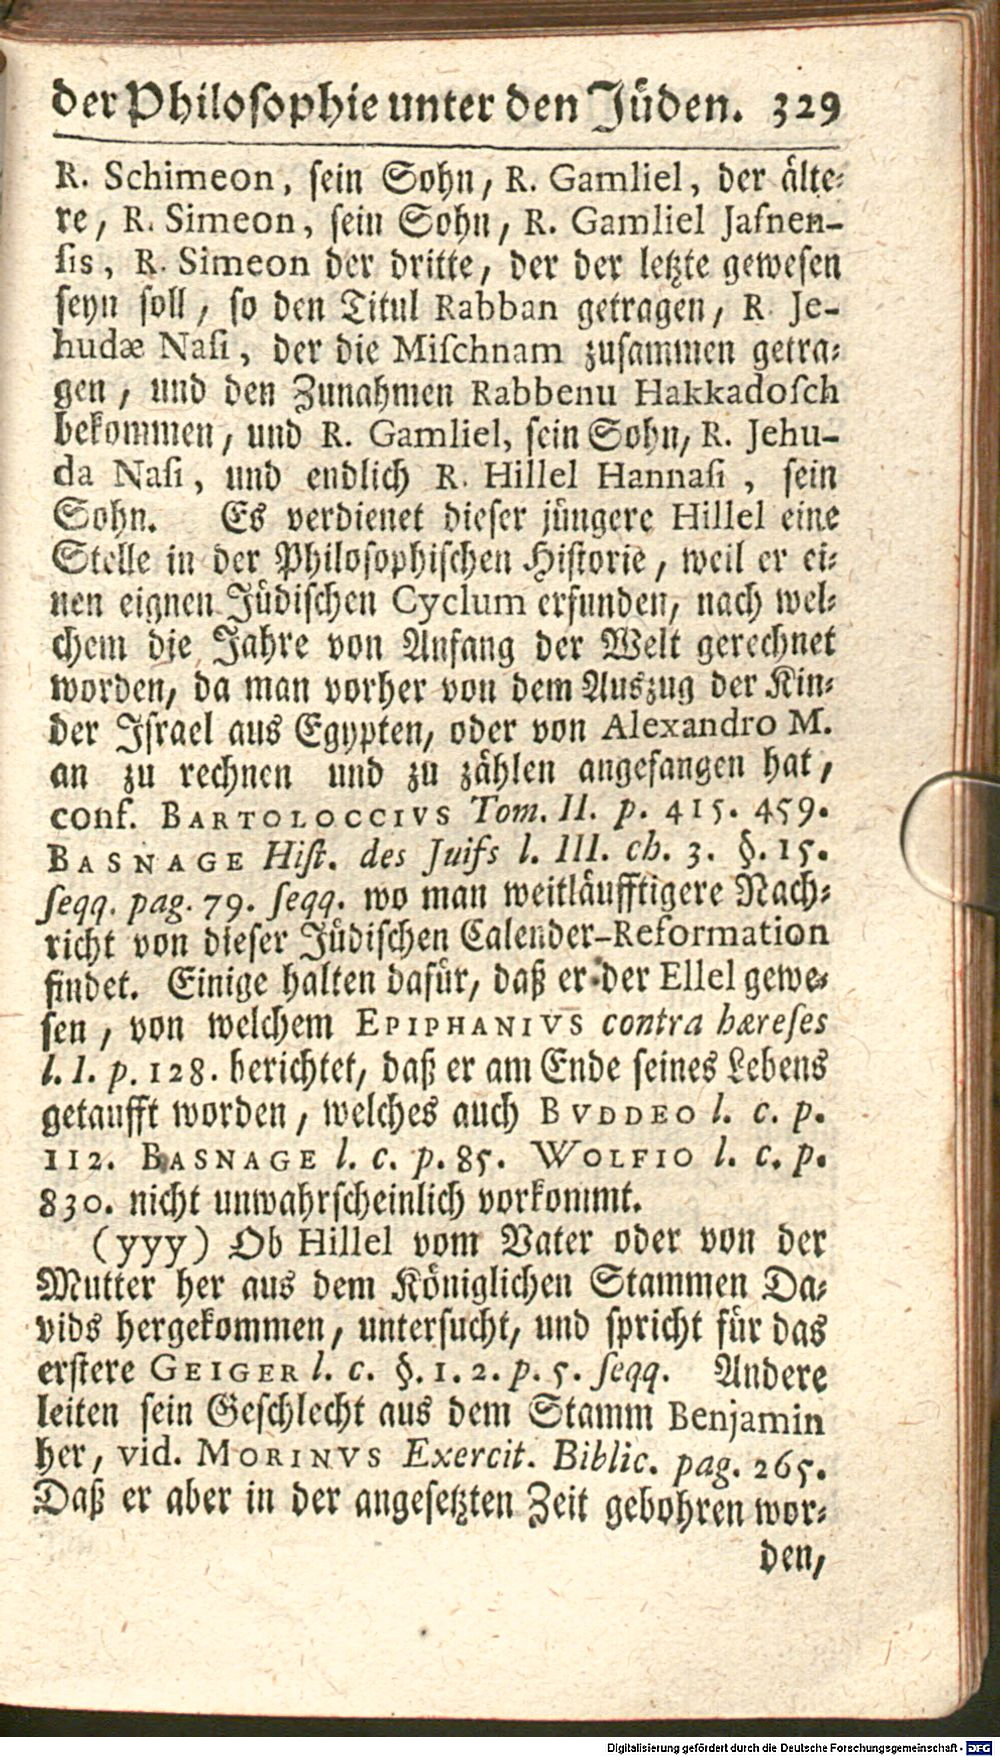 der Philosophie unter den Jüden. 329
R. Schimeon, sein Sohn, R. Gamliel, der älte-
re, R. Simeon, sein Sohn, R. Gamliel Jaſnen-
ſis, R. Simeon der dritte, der der letzte gewesen
seyn soll, so den Titul Rabban getragen, R. Je-
hudæ Naſi, der die Miſchnam zusammen getra-
gen, und den Zunahmen Rabbenu Hakkadoſch
bekommen, und R. Gamliel, sein Sohn, R. Jehu-
da Naſi, und endlich R. Hillel Hannaſi, sein
Sohn. Es verdienet dieser jüngere Hillel eine
Stelle in der Philosophischen Historie, weil er ei-
nen eignen Jüdischen Cyclum erfunden, nach wel-
chem die Jahre von Anfang der Welt gerechnet
worden, da man vorher von dem Auszug der Kin-
der Israel aus Egypten, oder von Alexandro M.
an zu rechnen und zu zählen angefangen hat,
conf. BARTOLOCCIVS Tom. II. p. 415. 459.
BASNAGE Hiſt. des Juifs l. III. ch. 3. §. 15.
ſeqq. pag. 79. ſeqq. wo man weitläufftigere Nach-
richt von dieser Jüdischen Calender-Reformation
findet. Einige halten dafür, daß er der Ellel gewe-
sen, von welchem EPIPHANIVS contra hæreſes
l. I. p. 128. berichtet, daß er am Ende seines Lebens
getaufft worden, welches auch BVDDEO l. c. p.
112. BASNAGE l. c. p. 85. WOLFIO l. c. p.
830. nicht unwahrscheinlich vorkommt.
(yyy) Ob Hillel vom Vater oder von der
Mutter her aus dem Königlichen Stammen Da-
vids hergekommen, untersucht, und spricht für das
erstere GEIGER l. c. §. 1. 2. p. 5. ſeqq. Andere
leiten sein Geschlecht aus dem Stamm Benjamin
her, vid. MORINVS Exercit. Biblic. pag. 265.
Daß er aber in der angesetzten Zeit gebohren wor-
den,
Digitalisierung gefördert durch die Deutsche Forschungsgemeinschaft - DFG